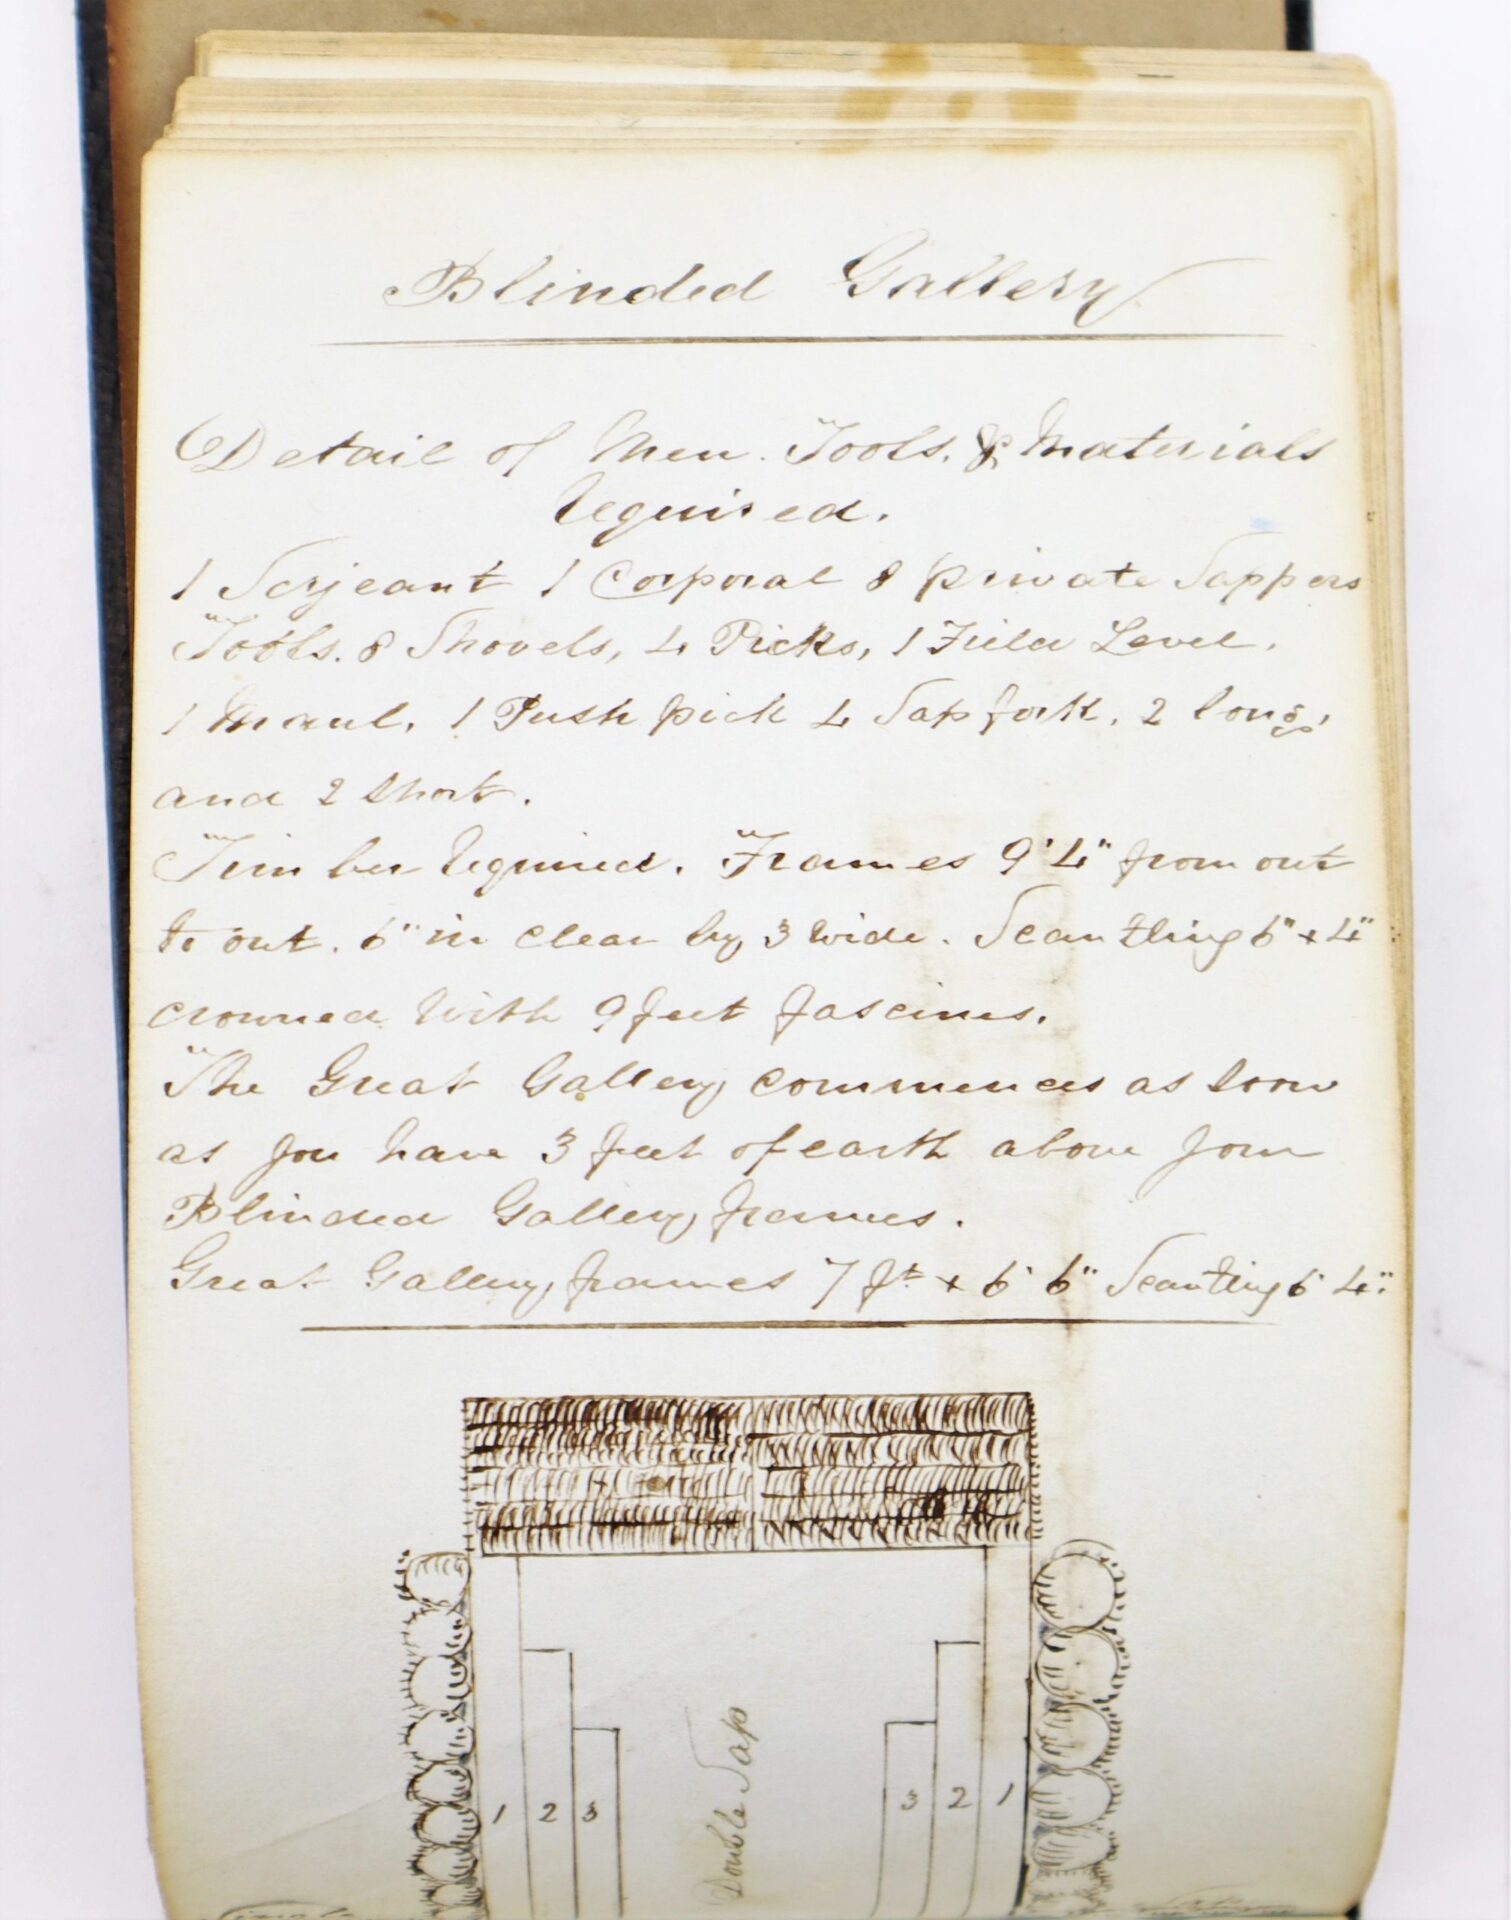 Blinded Gallery
Detail of Men. Tools. & Materials
required.
1 Serjeant 1 Corporal 8 private Sappers
Tools. 8 Shovels, 4 Picks, 1 Field Level.
1 Maul, 1 Push pick 4 Sap fork, 2 long,
and 2 short.
Timber required. Frames 9' 4" from out
to out. 6" in clear by 3 wide. Scantling 6" x 4"
crowned with 9 feet fascines.
The Great Gallery commences as soon
as you have 3 feet of earth above your
Blinded Gallery frames.
Great Gallery frames 7 ft x 6' 6" Scantling 6' 4"
1 2 3
Double Sap
3 2 1
Single